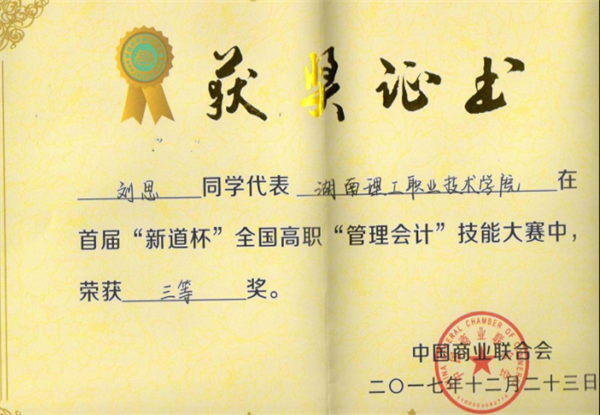 获奖证书
刘思 同学代表 湖南理工职业技术学院 在
首届“新道杯”全国高职“管理会计”技能大赛中，
荣获 三等 奖。
中国商业联合会
二〇一七年十二月二十三日